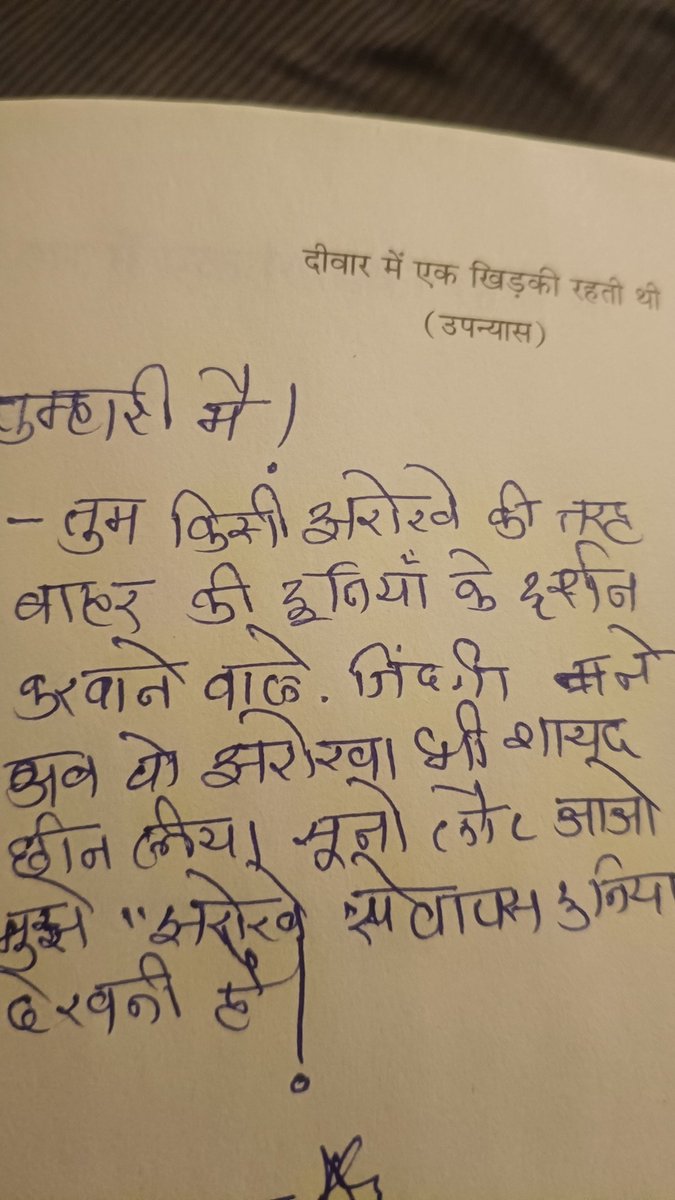 दीवार में एक खिड़की रहती थी
(उपन्यास)
तुम्हारी मै।
- तुम किसी झरोखे की तरह
बाहर की दुनियाँ के दर्शन
करवाने वाले. जिंदगी ने
अब वो झरोखा भी शायद
छीन लीया। सूनो लौट आओ
मुझे "झरोखे से वापस दुनिया
देखनी है।